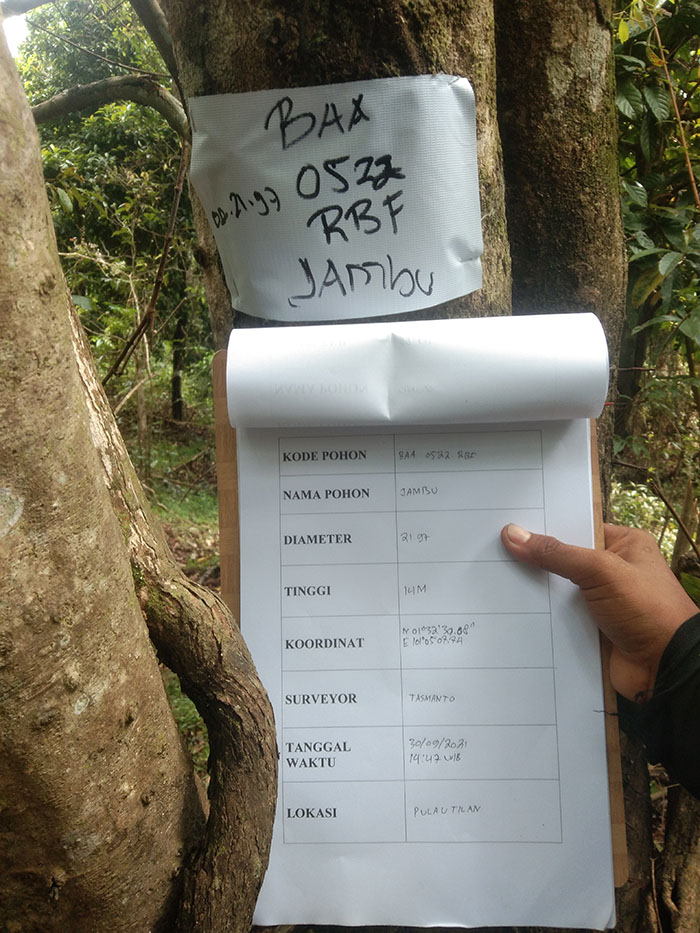 BAA
0522
DD.21.97
RBF
JAMBU
KODE POHON BAA 0522 RBF
NAMA POHON JAMBU
DIAMETER 21.97
TINGGI 14M
KOORDINAT N 01°32'30.08"
E 101°05'07.74
SURVEYOR TASMANTO
TANGGAL 30/09/2021
WAKTU 14:47 WIB
LOKASI PULAU TILAN